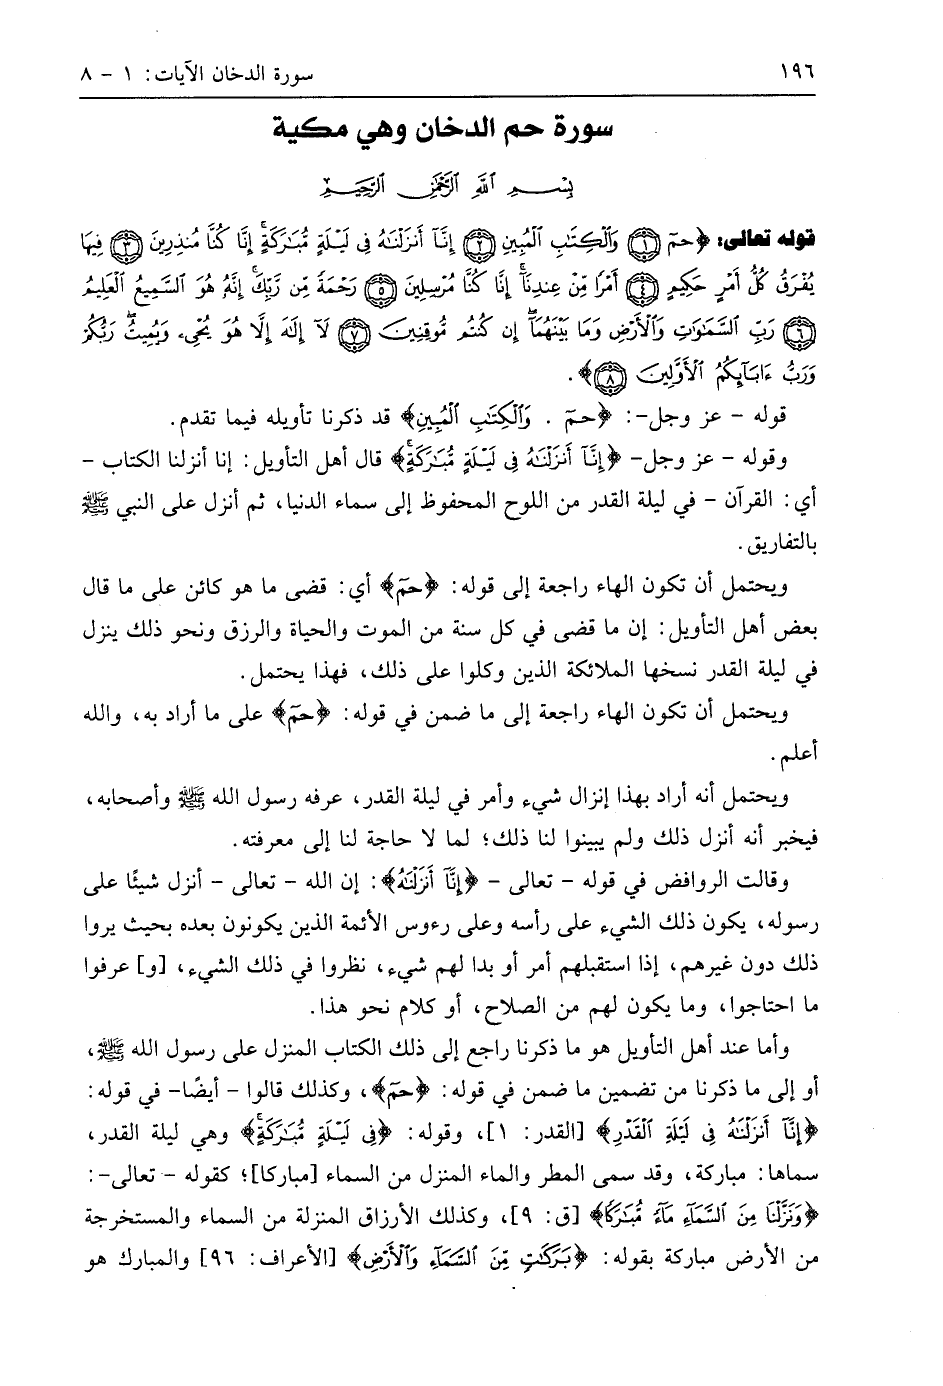 ١٩٦ سورة الدخان الآيات: ١ - ٨
سورة حم الدخان وهي مكية
بِسْمِ ٱللَّهِ ٱلرَّحْمَٰنِ ٱلرَّحِيمِ
قوله تعالى: ﴿حمٓ ﴿١﴾ وَٱلْكِتَٰبِ ٱلْمُبِينِ ﴿٢﴾ إِنَّآ أَنزَلْنَٰهُ فِى لَيْلَةٍ مُّبَٰرَكَةٍ ۚ إِنَّا كُنَّا مُنذِرِينَ ﴿٣﴾ فِيهَا
يُفْرَقُ كُلُّ أَمْرٍ حَكِيمٍ ﴿٤﴾ أَمْرًا مِّنْ عِندِنَآ ۚ إِنَّا كُنَّا مُرْسِلِينَ ﴿٥﴾ رَحْمَةً مِّن رَّبِّكَ ۚ إِنَّهُۥ هُوَ ٱلسَّمِيعُ ٱلْعَلِيمُ
﴿٦﴾ رَبِّ ٱلسَّمَٰوَٰتِ وَٱلْأَرْضِ وَمَا بَيْنَهُمَآ ۖ إِن كُنتُم مُّوقِنِينَ ﴿٧﴾ لَآ إِلَٰهَ إِلَّا هُوَ يُحْىِۦ وَيُمِيتُ ۖ رَبُّكُمْ
وَرَبُّ ءَابَآئِكُمُ ٱلْأَوَّلِينَ ﴿٨﴾﴾.
قوله - عز وجل-: ﴿حمٓ . وَٱلْكِتَٰبِ ٱلْمُبِينِ﴾ قد ذكرنا تأويله فيما تقدم.
وقوله - عز وجل- ﴿إِنَّآ أَنزَلْنَٰهُ فِى لَيْلَةٍ مُّبَٰرَكَةٍ ۚ﴾ قال أهل التأويل: إنا أنزلنا الكتاب -
أي: القرآن - في ليلة القدر من اللوح المحفوظ إلى سماء الدنيا، ثم أنزل على النبي ﷺ
بالتفاريق.
ويحتمل أن تكون الهاء راجعة إلى قوله: ﴿حمٓ﴾ أي: قضى ما هو كائن على ما قال
بعض أهل التأويل: إن ما قضى في كل سنة من الموت والحياة والرزق ونحو ذلك ينزل
في ليلة القدر نسخها الملائكة الذين وكلوا على ذلك، فهذا يحتمل.
ويحتمل أن تكون الهاء راجعة إلى ما ضمن في قوله: ﴿حمٓ﴾ على ما أراد به، والله
أعلم.
ويحتمل أنه أراد بهذا إنزال شيء وأمر في ليلة القدر، عرفه رسول الله ﷺ وأصحابه،
فيخبر أنه أنزل ذلك ولم يبينوا لنا ذلك؛ لما لا حاجة لنا إلى معرفته.
وقالت الروافض في قوله - تعالى - ﴿إِنَّآ أَنزَلْنَٰهُ﴾: إن الله - تعالى - أنزل شيئًا على
رسوله، يكون ذلك الشيء على رأسه وعلى رءوس الأئمة الذين يكونون بعده بحيث يروا
ذلك دون غيرهم، إذا استقبلهم أمر أو بدا لهم شيء، نظروا في ذلك الشيء، [و] عرفوا
ما احتاجوا، وما يكون لهم من الصلاح، أو كلام نحو هذا.
وأما عند أهل التأويل هو ما ذكرنا راجع إلى ذلك الكتاب المنزل على رسول الله ﷺ،
أو إلى ما ذكرنا من تضمين ما ضمن في قوله: ﴿حمٓ﴾، وكذلك قالوا - أيضًا- في قوله:
﴿إِنَّآ أَنزَلْنَٰهُ فِى لَيْلَةِ ٱلْقَدْرِ﴾ [القدر: ١]، وقوله: ﴿فِى لَيْلَةٍ مُّبَٰرَكَةٍ ۚ﴾ وهي ليلة القدر،
سماها: مباركة، وقد سمى المطر والماء المنزل من السماء [مباركا]؛ كقوله - تعالى-:
﴿وَنَزَّلْنَا مِنَ ٱلسَّمَآءِ مَآءً مُّبَٰرَكًا﴾ [ق: ٩]، وكذلك الأرزاق المنزلة من السماء والمستخرجة
من الأرض مباركة بقوله: ﴿بَرَكَٰتٍ مِّنَ ٱلسَّمَآءِ وَٱلْأَرْضِ﴾ [الأعراف: ٩٦] والمبارك هو